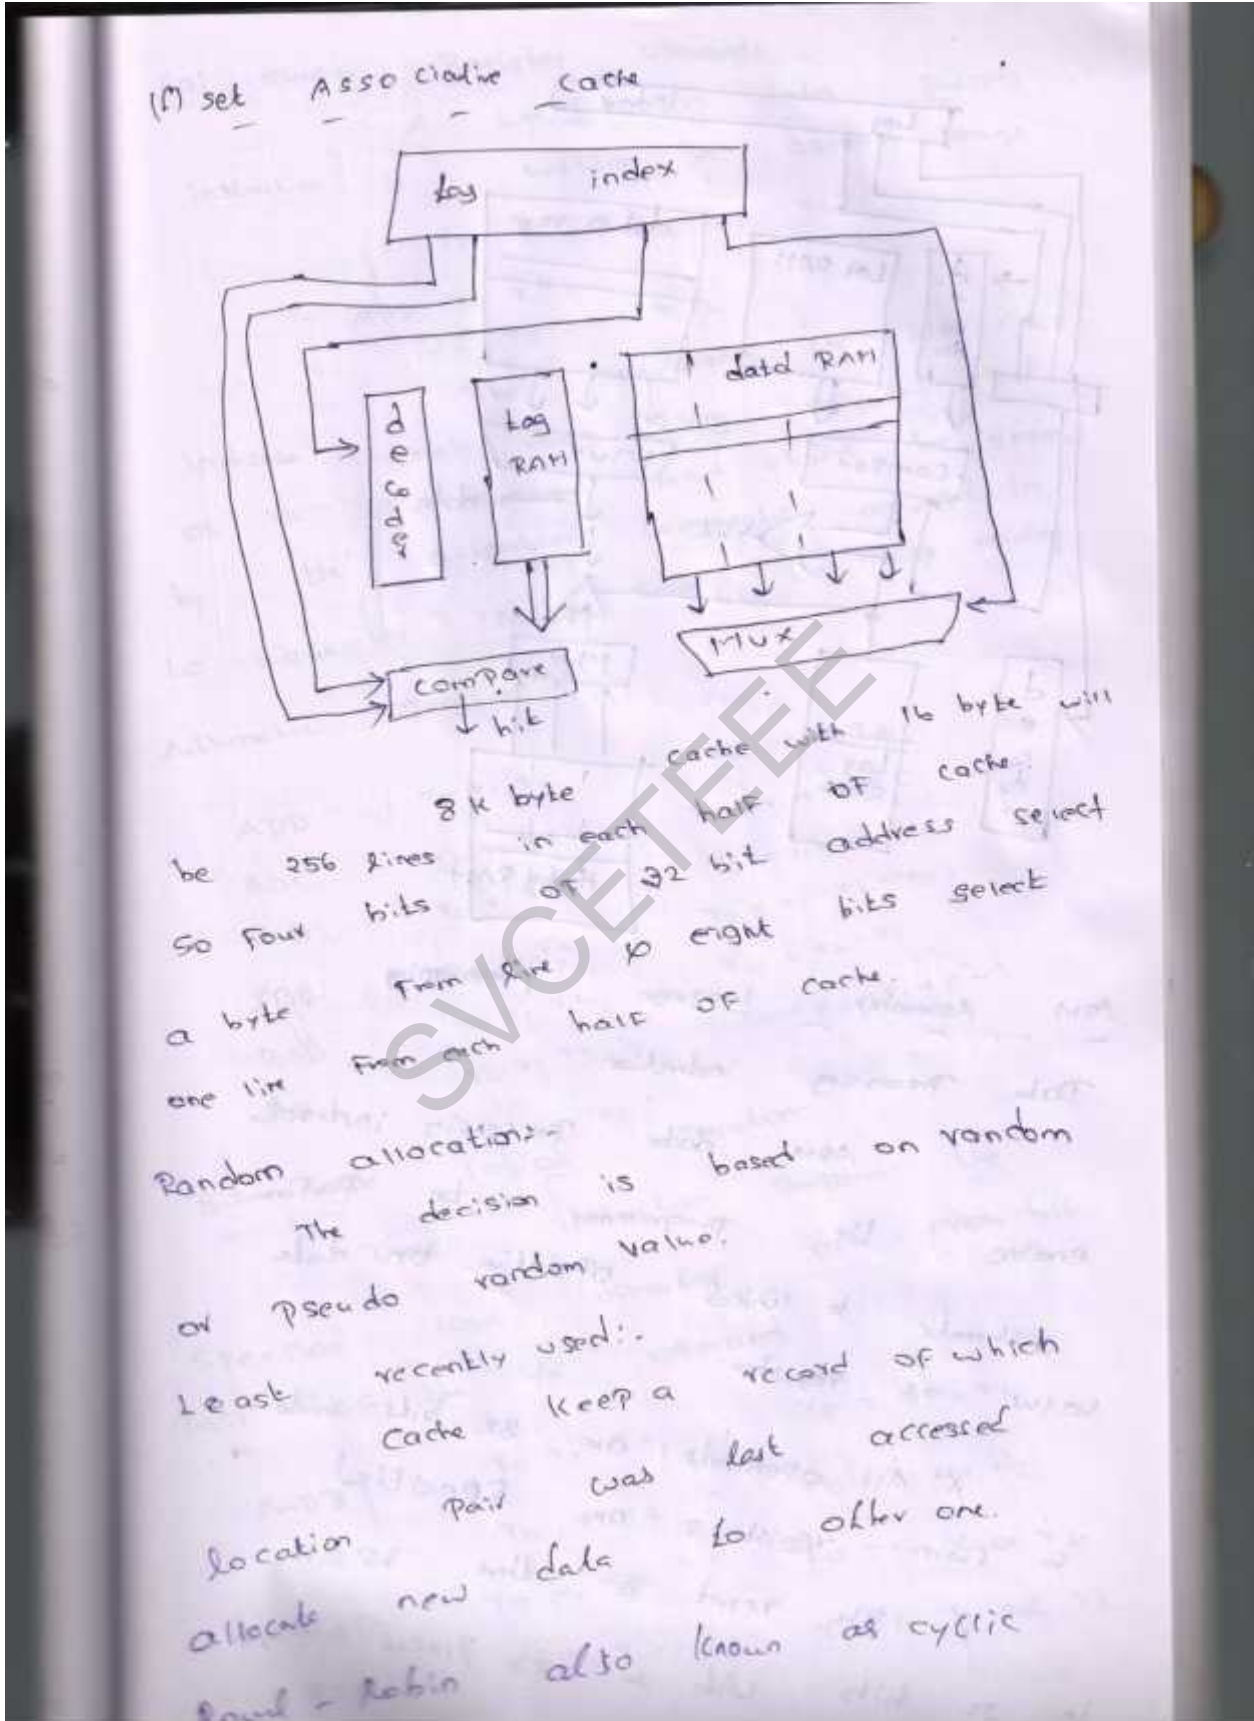 (11) set Associative cache
tag index
decoder
tag
RAM
data RAM
compare
hit
Mux
8 K byte cache with 16 byte will
be 256 lines in each half of cache.
So Four bits of 32 bit address select
a byte from line & eight bits select
one line From each half of cache.
Random allocation:-
The decision is based on random
or pseudo random value.
Least recently used:-
Cache keep a record of which
location pair was last accessed
allocate new data to other one.
Round-Robin also known as cyclic
SVCETEEE